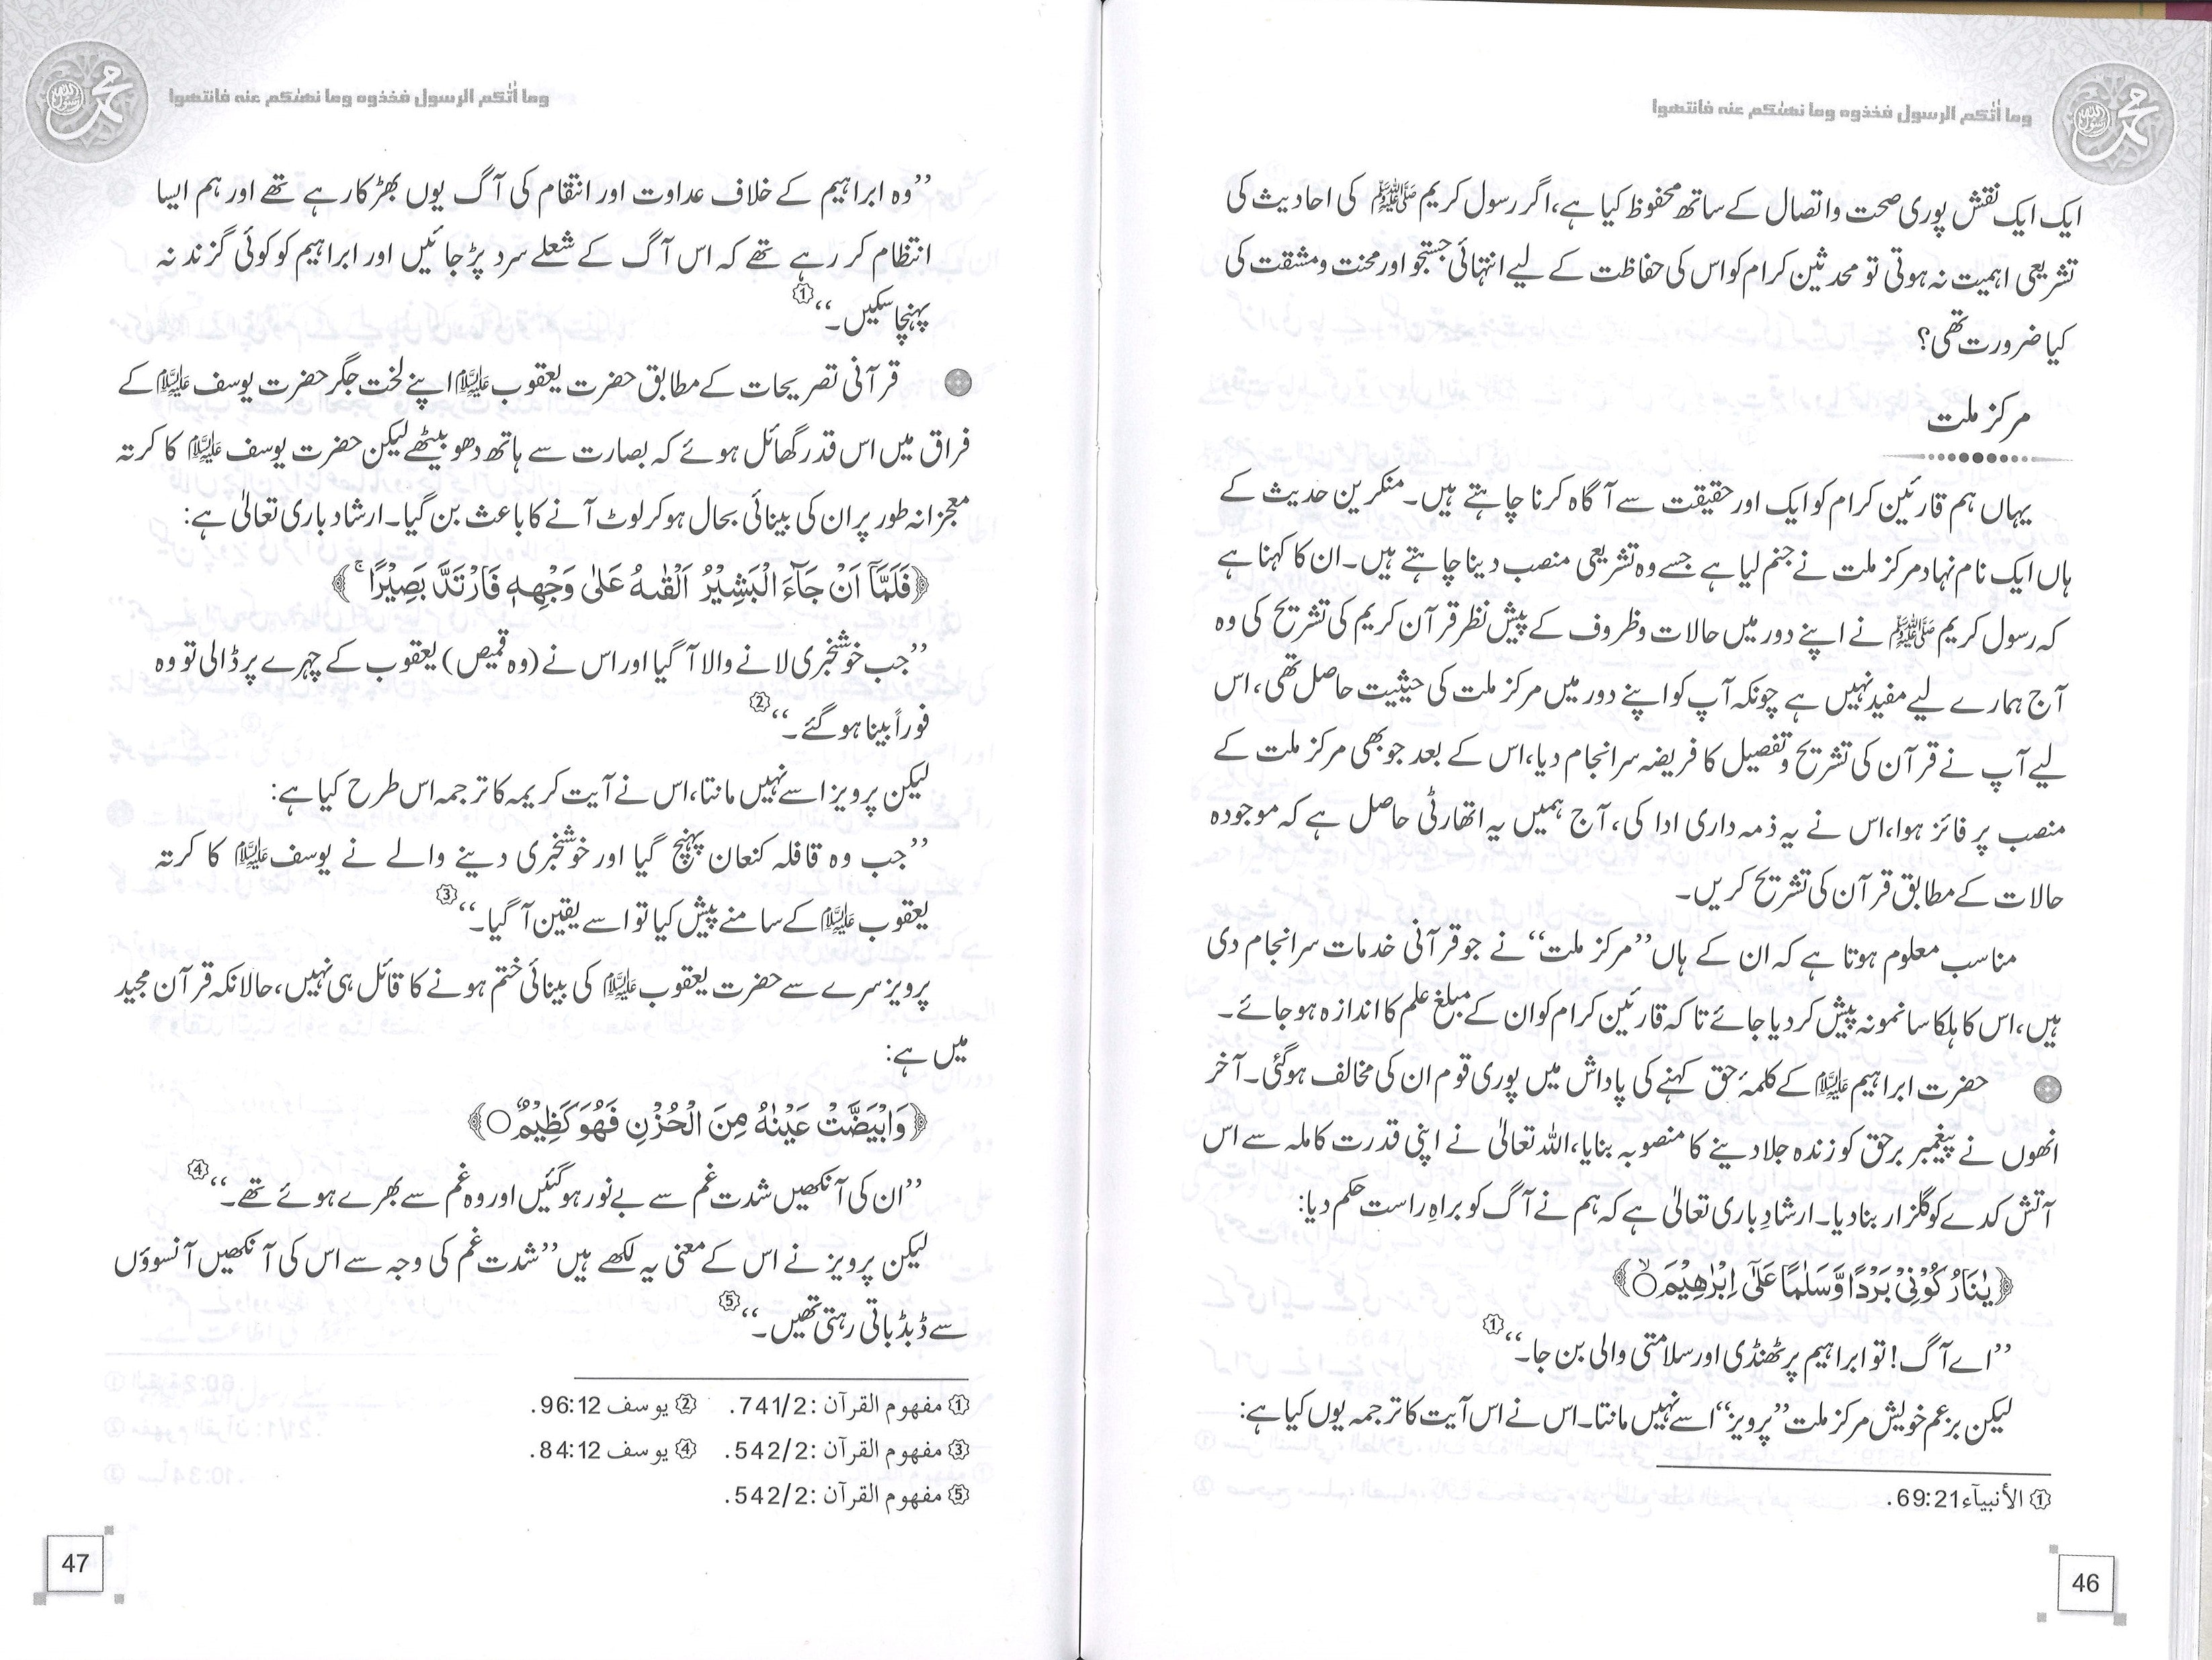 وما أتٰكم الرسول فخذوه وما نهٰكم عنه فانتهوا
ایک ایک نقش پوری صحت و اتصال کے ساتھ محفوظ کیا ہے، اگر رسول کریم ﷺ کی احادیث کی
تشریعی اہمیت نہ ہوتی تو محدثین کرام کو اس کی حفاظت کے لیے انتہائی جستجو اور محنت و مشقت کی
کیا ضرورت تھی؟
مرکز ملت
یہاں ہم قارئین کرام کو ایک اور حقیقت سے آگاہ کرنا چاہتے ہیں۔ منکرین حدیث کے
ہاں ایک نام نہاد مرکز ملت نے جنم لیا ہے جسے وہ تشریعی منصب دینا چاہتے ہیں۔ ان کا کہنا ہے
کہ رسول کریم ﷺ نے اپنے دور میں حالات و ظروف کے پیش نظر قرآن کریم کی تشریح کی وہ
آج ہمارے لیے مفید نہیں ہے چونکہ آپ کو اپنے دور میں مرکز ملت کی حیثیت حاصل تھی، اس
لیے آپ نے قرآن کی تشریح و تفصیل کا فریضہ سر انجام دیا، اس کے بعد جو بھی مرکز ملت کے
منصب پر فائز ہوا، اس نے یہ ذمہ داری ادا کی، آج ہمیں یہ اتھارٹی حاصل ہے کہ موجودہ
حالات کے مطابق قرآن کی تشریح کریں۔
مناسب معلوم ہوتا ہے کہ ان کے ہاں ’’مرکز ملت‘‘ نے جو قرآنی خدمات سرانجام دی
ہیں، اس کا ہلکا سا نمونہ پیش کر دیا جائے تاکہ قارئین کرام کو ان کے مبلغ علم کا اندازہ ہو جائے۔
حضرت ابراہیم علیہ السلام کے کلمۂ حق کہنے کی پاداش میں پوری قوم ان کی مخالف ہو گئی۔ آخر
انھوں نے پیغمبر برحق کو زندہ جلا دینے کا منصوبہ بنایا، اللہ تعالیٰ نے اپنی قدرت کاملہ سے اس
آتش کدے کو گلزار بنا دیا۔ ارشادِ باری تعالیٰ ہے کہ ہم نے آگ کو براہِ راست حکم دیا:
﴿يٰنَارُ كُوْنِيْ بَرْدًا وَّسَلٰمًا عَلٰٓى اِبْرٰهِيْمَ﴾
’’اے آگ! تو ابراہیم پر ٹھنڈی اور سلامتی والی بن جا۔‘‘ ①
لیکن بزعم خویش مرکز ملت ’’پرویز‘‘ اسے نہیں مانتا۔ اس نے اس آیت کا ترجمہ یوں کیا ہے:
① الأنبيآء 69:21.
46
وما أتٰكم الرسول فخذوه وما نهٰكم عنه فانتهوا
’’وہ ابراہیم کے خلاف عداوت اور انتقام کی آگ یوں بھڑکا رہے تھے اور ہم ایسا
انتظام کر رہے تھے کہ اس آگ کے شعلے سرد پڑ جائیں اور ابراہیم کو کوئی گزند نہ
پہنچا سکیں۔‘‘ ①
قرآنی تصریحات کے مطابق حضرت یعقوب علیہ السلام اپنے لخت جگر حضرت یوسف علیہ السلام کے
فراق میں اس قدر گھائل ہوئے کہ بصارت سے ہاتھ دھو بیٹھے لیکن حضرت یوسف علیہ السلام کا کرتہ
معجزانہ طور پر ان کی بینائی بحال ہو کر لوٹ آنے کا باعث بن گیا۔ ارشاد باری تعالیٰ ہے:
﴿فَلَمَّآ اَنْ جَآءَ الْبَشِيْرُ اَلْقٰىهُ عَلٰى وَجْهِهٖ فَارْتَدَّ بَصِيْرًا ۚ﴾
’’جب خوشخبری لانے والا آ گیا اور اس نے (وہ قمیص) یعقوب کے چہرے پر ڈالی تو وہ
فوراً بینا ہو گئے۔‘‘ ②
لیکن پرویز اسے نہیں مانتا، اس نے آیت کریمہ کا ترجمہ اس طرح کیا ہے:
’’جب وہ قافلہ کنعان پہنچ گیا اور خوشخبری دینے والے نے یوسف علیہ السلام کا کرتہ
یعقوب علیہ السلام کے سامنے پیش کیا تو اسے یقین آ گیا۔‘‘ ③
پرویز سرے سے حضرت یعقوب علیہ السلام کی بینائی ختم ہونے کا قائل ہی نہیں، حالانکہ قرآن مجید
میں ہے:
﴿وَابْيَضَّتْ عَيْنٰهُ مِنَ الْحُزْنِ فَهُوَ كَظِيْمٌ﴾
’’ان کی آنکھیں شدت غم سے بے نور ہو گئیں اور وہ غم سے بھرے ہوئے تھے۔‘‘ ④
لیکن پرویز نے اس کے معنی یہ لکھے ہیں ’’شدت غم کی وجہ سے اس کی آنکھیں آنسوؤں
سے ڈبڈباتی رہتی تھیں۔‘‘ ⑤
① مفهوم القرآن :741/2. ② يوسف 96:12.
③ مفهوم القرآن :542/2. ④ يوسف 84:12.
⑤ مفهوم القرآن :542/2.
47